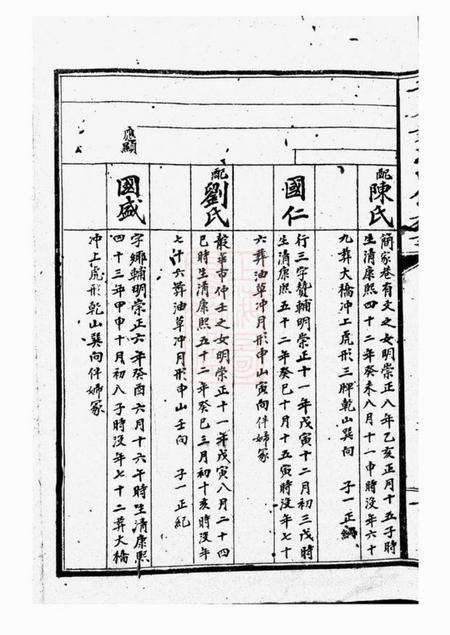 配陳氏
簡家巷有文之女明崇正八年乙亥正月十五子時
生清康熙四十二年癸未八月十一申時沒年六十
九葬大橋沖上虎形三脾乾山巽向 子一正紀
國仁
行三字贊輔明崇正十一年戊寅十二月初三戌時
生清康熙五十二年癸巳十月十五寅時沒年七十
六葬油草沖月形申山寅向伴姊冢
配劉氏
殼華市仲士之女明崇正十一年戊寅八月二十四
巳時生清康熙五十二年癸巳三月初十亥時沒年
七十六葬油草沖月形申山壬向 子一正紀
應顯
國盛
字鄉輔明崇正六年癸酉六月十六午時生清康熙
四十三年甲申十月初八子時沒年七十二葬大橋
沖上虎形乾山巽向伴姊冢